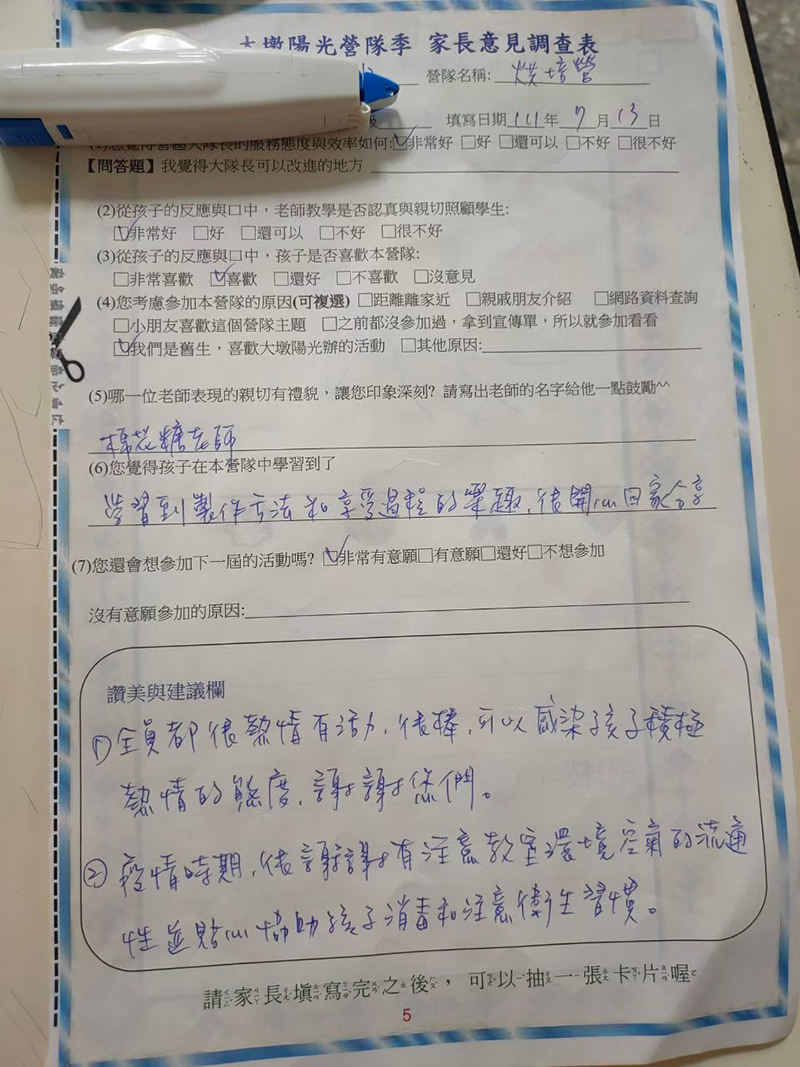 大墩陽光營隊季 家長意見調查表
營隊名稱: 烘培營
級 填寫日期111年7月13日
(1)您覺得營隊大隊長的服務態度與效率如何:☑非常好 □好 □還可以 □不好 □很不好
【問答題】我覺得大隊長可以改進的地方
(2)從孩子的反應與口中，老師教學是否認真與親切照顧學生:
☑非常好 □好 □還可以 □不好 □很不好
(3)從孩子的反應與口中，孩子是否喜歡本營隊:
□非常喜歡 ☑喜歡 □還好 □不喜歡 □沒意見
(4)您考慮參加本營隊的原因(可複選) □距離離家近 □親戚朋友介紹 □網路資料查詢
□小朋友喜歡這個營隊主題 □之前都沒參加過，拿到宣傳單，所以就參加看看
☑我們是舊生，喜歡大墩陽光辦的活動 □其他原因:
(5)哪一位老師表現的親切有禮貌，讓您印象深刻? 請寫出老師的名字給他一點鼓勵^^
棉花糖老師
(6)您覺得孩子在本營隊中學習到了
學習到製作方法和享受過程的樂趣,很開心回家分享
(7)您還會想參加下一屆的活動嗎? ☑非常有意願□有意願□還好□不想參加
沒有意願參加的原因:
讚美與建議欄
① 全員都很熱情有活力,很棒,可以感染孩子積極
熱情的態度,謝謝您們。
② 疫情時期,很謝謝有注意教室環境空氣的流通
性並貼心協助孩子消毒和注意衛生習慣。
請家長填寫完之後，可以抽一張卡片喔
5